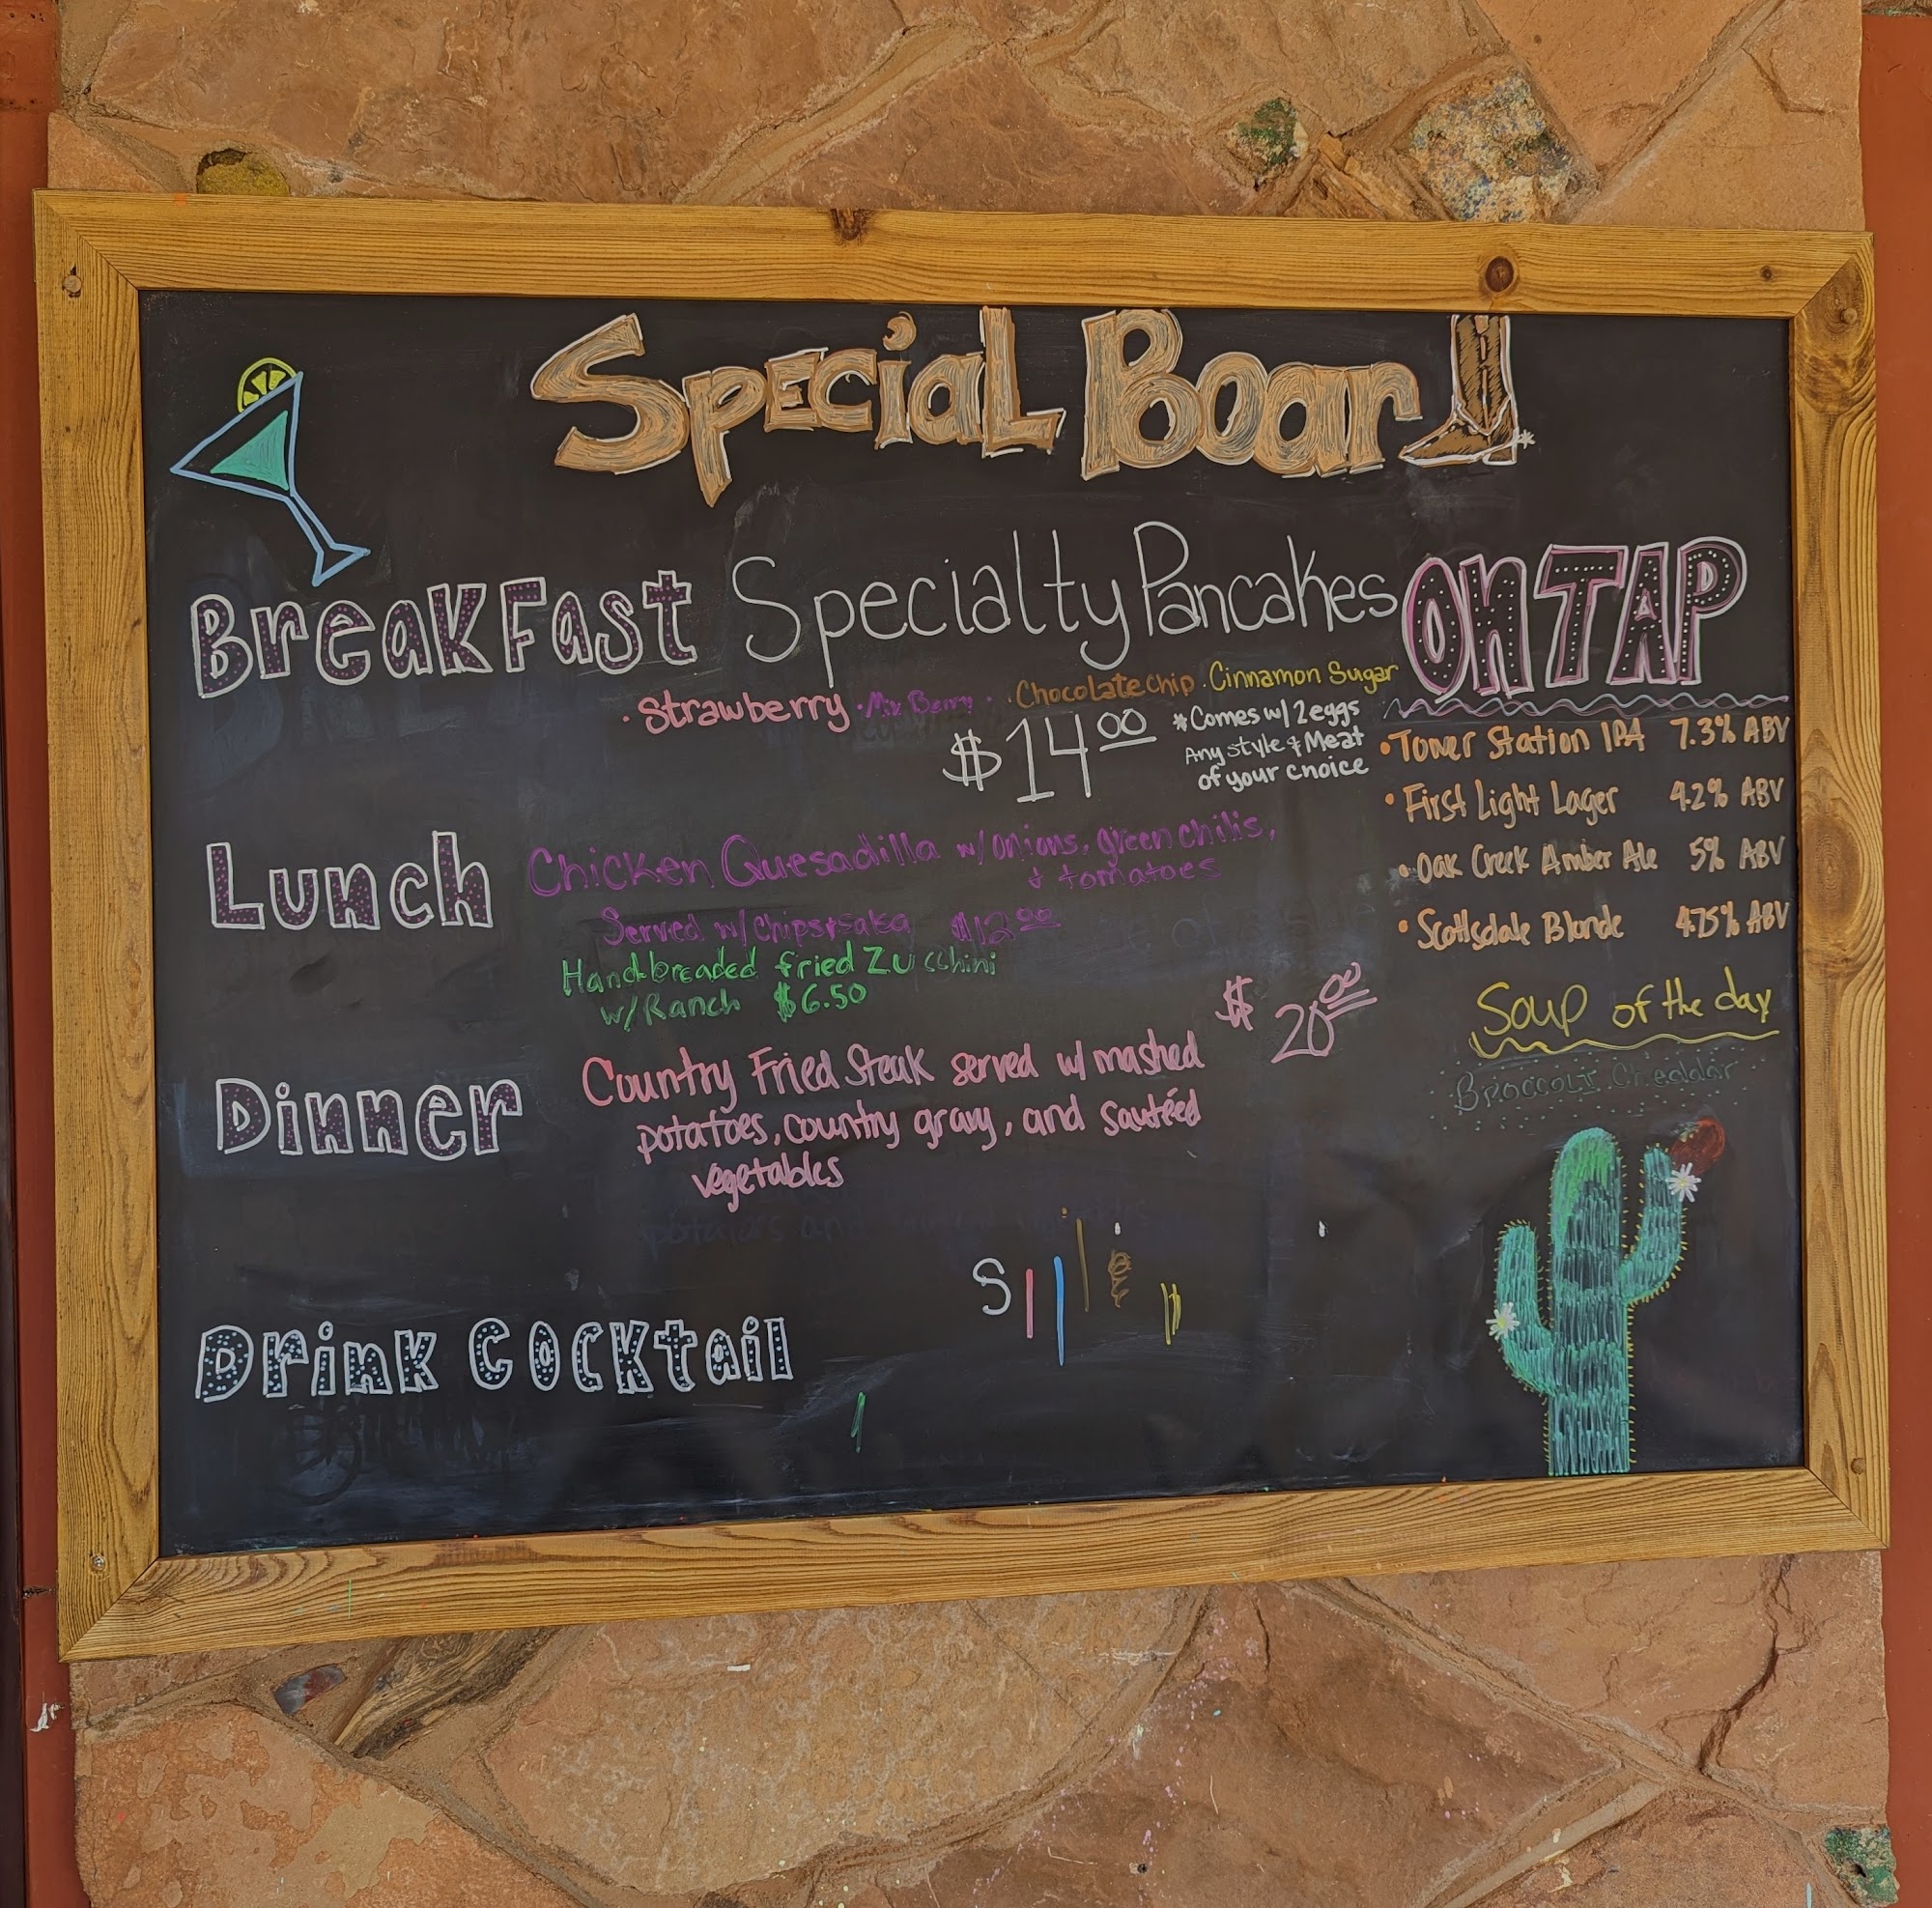 Special Boar
BreakFast Specialty Pancakes
· Strawberry · Mix Berry · Chocolate chip · Cinnamon Sugar
$14.00
*Comes w/ 2 eggs
Any style & Meat
of your choice
Lunch
Chicken Quesadilla w/ onions, green chilis,
& tomatoes
Served w/ chips & salsa $12.00
Hand-breaded fried Zucchini
w/ Ranch $6.50
Dinner
Country Fried Steak served w/ mashed
potatoes, country gravy, and sautéed
vegetables
$20.00
Drink Cocktail
ON TAP
· Tower Station IPA 7.3% ABV
· First Light Lager 4.2% ABV
· Oak Creek Amber Ale 5% ABV
· Scottsdale Blonde 4.75% ABV
Soup of the day
Broccoli Cheddar